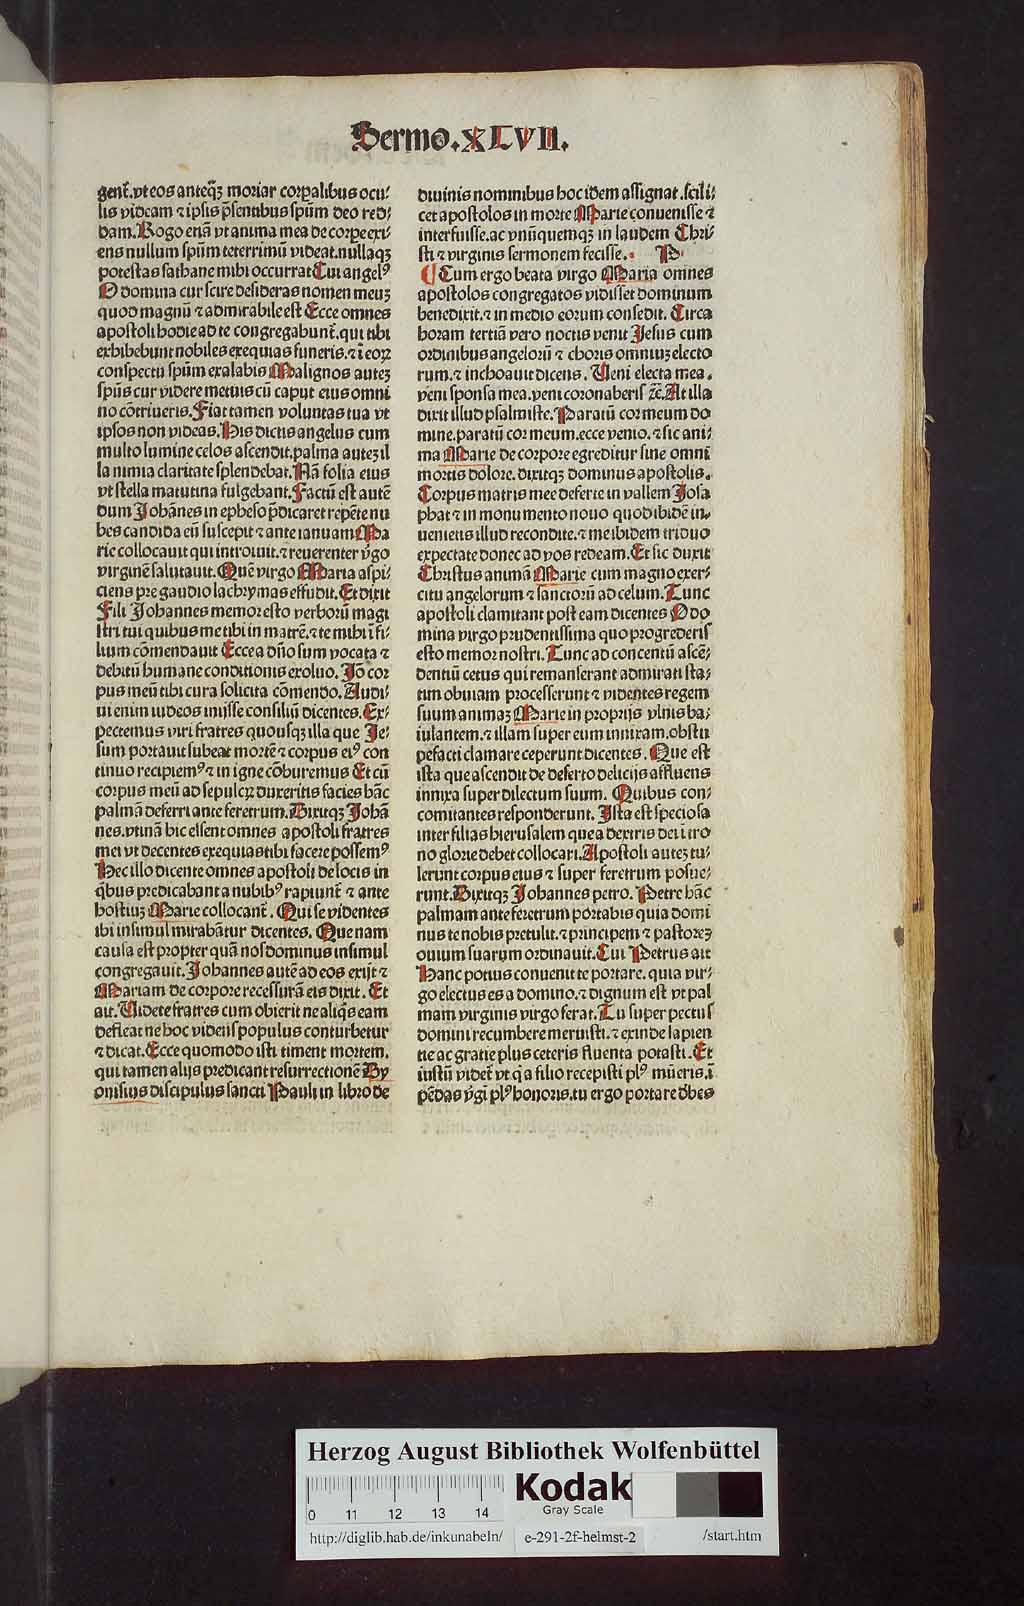 Sermo. XLVII.
gent̃. vt eos anteq̃ꝫ moriar corꝑalibus ocu-
lis videam ⁊ ipsis p̃sentibus spũm deo red-
dam. Rogo etiã vt anima mea de corꝑe exi-
ens nullum spũm teterrimũ videat. nullaqꝫ
potestas sathane mihi occurrat Cui angelꝰ
O domina cur scire desideras nomen meuꝫ
quod magnũ ⁊ admirabile est Ecce omnes
apostoli hodie ad te congregabunt̃. qui tibi
exhibebunt nobiles exequias funeris. ⁊ ĩ eoꝝ
conspectu spũm exalabis Malignos auteꝫ
spũs cur videre metuis cũ caput eius omni
no cõtriueris. Fiat tamen voluntas tua vt
ipsos non videas. His dictis angelus cum
multo lumine celos ascendit. palma auteꝫ il
la nimia claritate splendebat. Nã folia eius
vt stella matutina fulgebant. Factũ est autẽ
dum Johãnes in epheso p̃dicaret repẽte nu
bes candida eũ suscepit ⁊ ante ianuam Ma
rie collocauit qui introiuit. ⁊ reuerenter v̾go
virginẽ salutauit. Quẽ virgo Maria aspi-
ciens pre gaudio lachrymas effudit. Et dixit
Fili Johannes memor esto verborũ magi
stri tui quibus me tibi in matrẽ. ⁊ te mihi ĩ fi-
lium cõmendauit Ecce a dño sum vocata ⁊
debitũ humane conditionis exoluo. Jõ cor
pus meũ tibi cura solicita cõmendo. Audi-
ui enim iudeos inijsse consiliũ dicentes. Ex-
pectemus viri fratres quousqꝫ illa que Je-
sum portauit subeat mortẽ ⁊ corpus eiꝰ con
tinuo recipiemꝰ ⁊ in igne cõburemus Et cũ
corpus meũ ad sepulcꝝ duxeritis facies hãc
palmã deferri ante feretrum. Dixitqꝫ Johã
nes. vtinã hic essent omnes apostoli fratres
mei vt decentes exequias tibi facere possemꝰ
Hec illo dicente omnes apostoli de locis in
q̃bus predicabant a nubibꝰ rapiunt̃ ⁊ ante
hostiuꝫ Marie collocant̃. Qui se videntes
ibi insimul mirabãtur dicentes. Que nam
causa est propter quã nos dominus insimul
congregauit. Johannes autẽ ad eos exijt ⁊
Mariam de corpore recessurã eis dixit. Et
ait. Videte fratres cum obierit ne aliq̃s eam
defleat ne hoc vidẽs populus conturbetur
⁊ dicat. Ecce quomodo isti timent mortem.
qui tamen alijs predicant resurrectionẽ Dy
onisius discipulus sancti Pauli in libro de
diuinis nominibus hoc idem assignat. scili-
cet apostolos in morte Marie conuenisse ⁊
interfuisse. ac vnũquemqꝫ in laudem Chri-
sti ⁊ virginis sermonem fecisse.
Cum ergo beata virgo Maria omnes
apostolos congregatos vidisset dominum
benedixit. ⁊ in medio eorum consedit. Circa
horam tertiã vero noctis venit Jesus cum
ordinibus angelorũ ⁊ choris omniuꝫ electo
rum. ⁊ inchoauit dicens. Veni electa mea.
veni sponsa mea. veni coronaberis ⁊c. At illa
dixit illud psalmiste. Paratũ cor meum do
mine. paratũ cor meum. ecce venio. ⁊ sic ani-
ma Marie de corpore egreditur sine omni
mortis dolore. dixitqꝫ dominus apostolis.
Corpus matris mee deferte in vallem Josa
phat ⁊ in monumento nouo quod ibidẽ in-
uenietis illud recondite. ⁊ me ibidem triduo
expectate donec ad vos redeam. Et sic duxit
Christus animã Marie cum magno exer-
citu angelorum ⁊ sanctorũ ad celum. Tunc
apostoli clamitant post eam dicentes O do
mina virgo prudentissima quo progrederis
esto memor nostri. Tunc ad concentũ ascẽ-
dentiũ cetus qui remanserant admirati sta-
tim obuiam processerunt ⁊ videntes regem
suum animaꝫ Marie in proprijs vlnis ba-
iulantem. ⁊ illam super eum innixam. obstu
pefacti clamare ceperunt dicentes. Que est
ista que ascendit de deserto delicijs affluens
innixa super dilectum suum. Quibus con-
comitantes responderunt. Ista est speciosa
inter filias hierusalem que a dextris dei ĩ tro
no glorie debet collocari. Apostoli auteꝫ tu-
lerunt corpus eius ⁊ super feretrum posue-
runt. Dixitqꝫ Johannes petro. Petre hãc
palmam ante feretrum portabis quia domi
nus te nobis pretulit. ⁊ principem ⁊ pastoreꝫ
ouium suarum ordinauit. Cui Petrus ait
Hanc potius conuenit te portare. quia vir-
go electus es a domino. ⁊ dignum est vt pal
mam virginis virgo ferat. Tu super pectus
domini recumbere meruisti. ⁊ exinde sapien
tie ac gratie plus ceteris fluenta potasti. Et
iustũ videt̃ vt q̃ a filio recepisti plꝰ mũeris. ĩ
pẽdas v̾gi plꝰ honoris. tu ergo portare d̾bes
Herzog August Bibliothek Wolfenbüttel
0 11 12 13 14
Kodak
Gray Scale
http://diglib.hab.de/inkunabeln/ e-291-2f-helmst-2 /start.htm